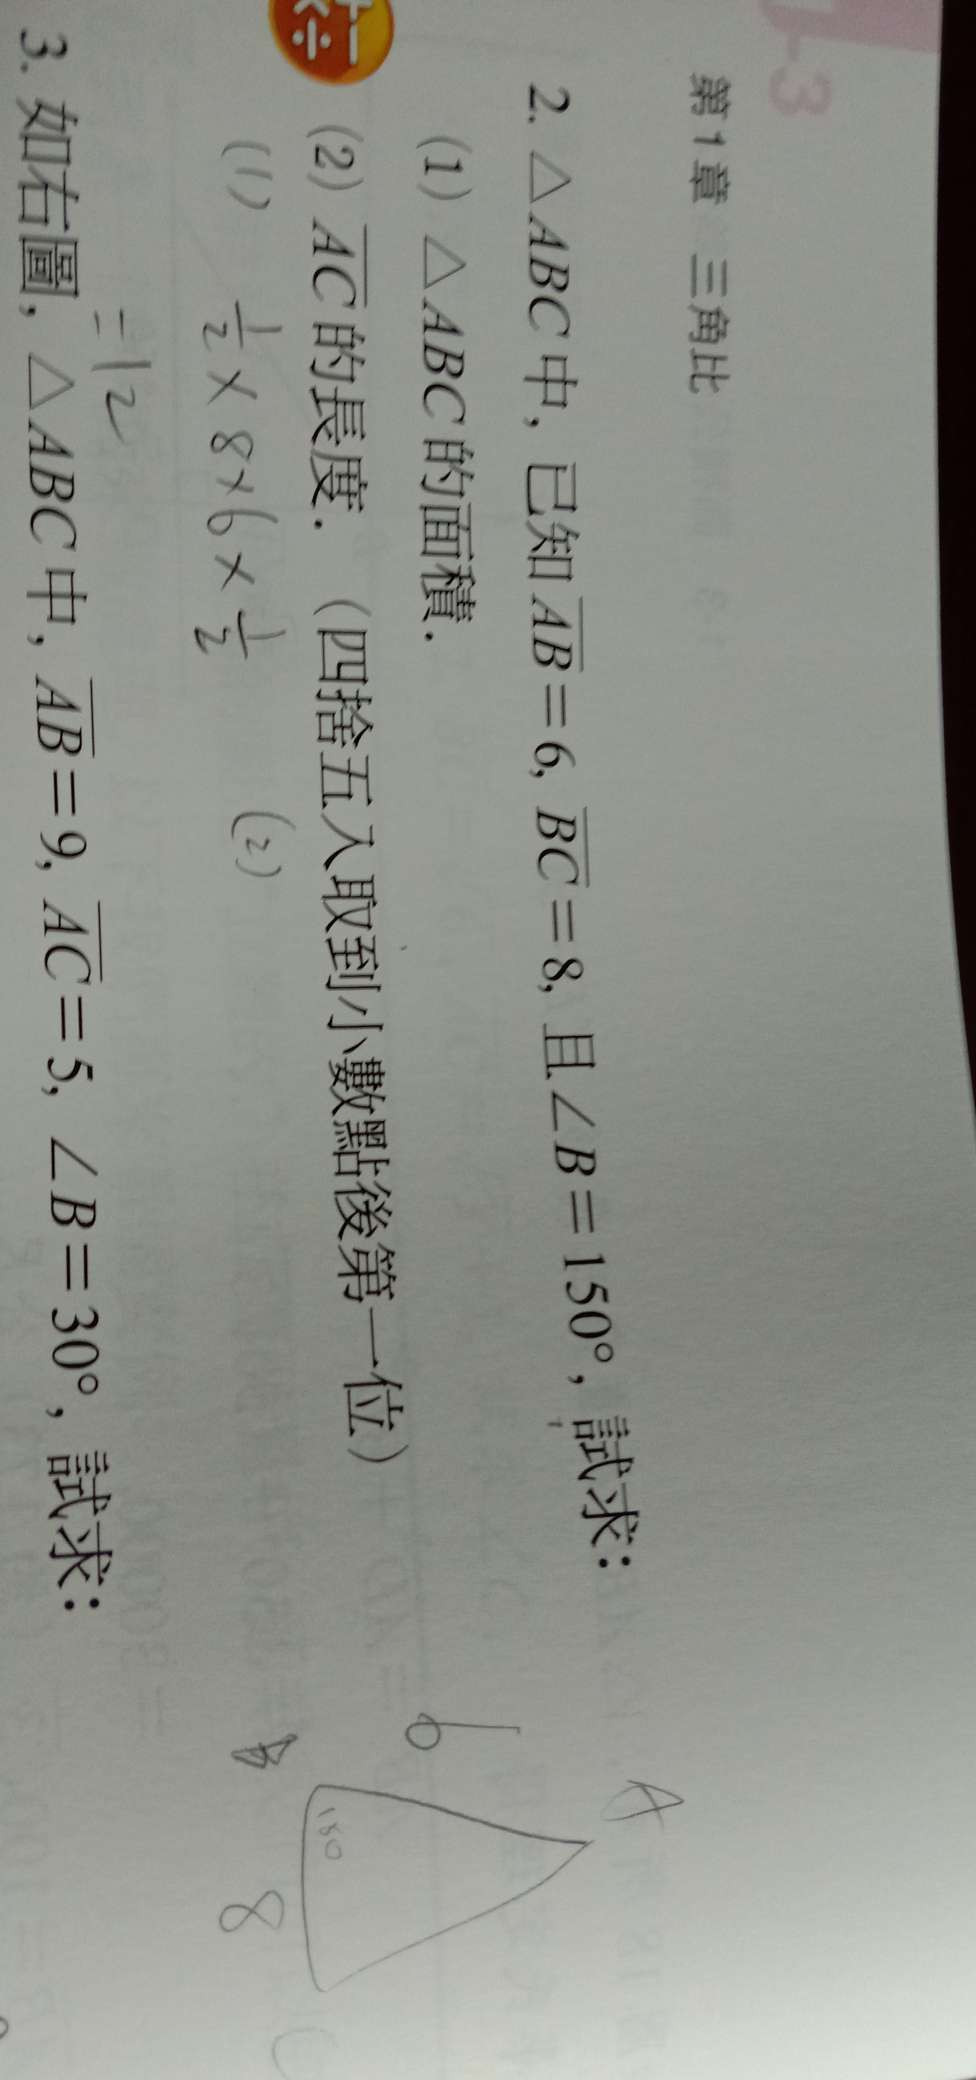 1-3
第1章 三角比
2. △ABC中, 已知 \overline{AB}=6, \overline{BC}=8, 且∠B=150°, 試求:
(1) △ABC的面積.
(2) \overline{AC}的長度. (四捨五入取到小數點後第一位)
(1) 1/2 × 8 × 6 × 1/2 (2)
= 12
A
6
B
150
8
3. 如右圖, △ABC中, \overline{AB}=9, \overline{AC}=5, ∠B=30°, 試求: